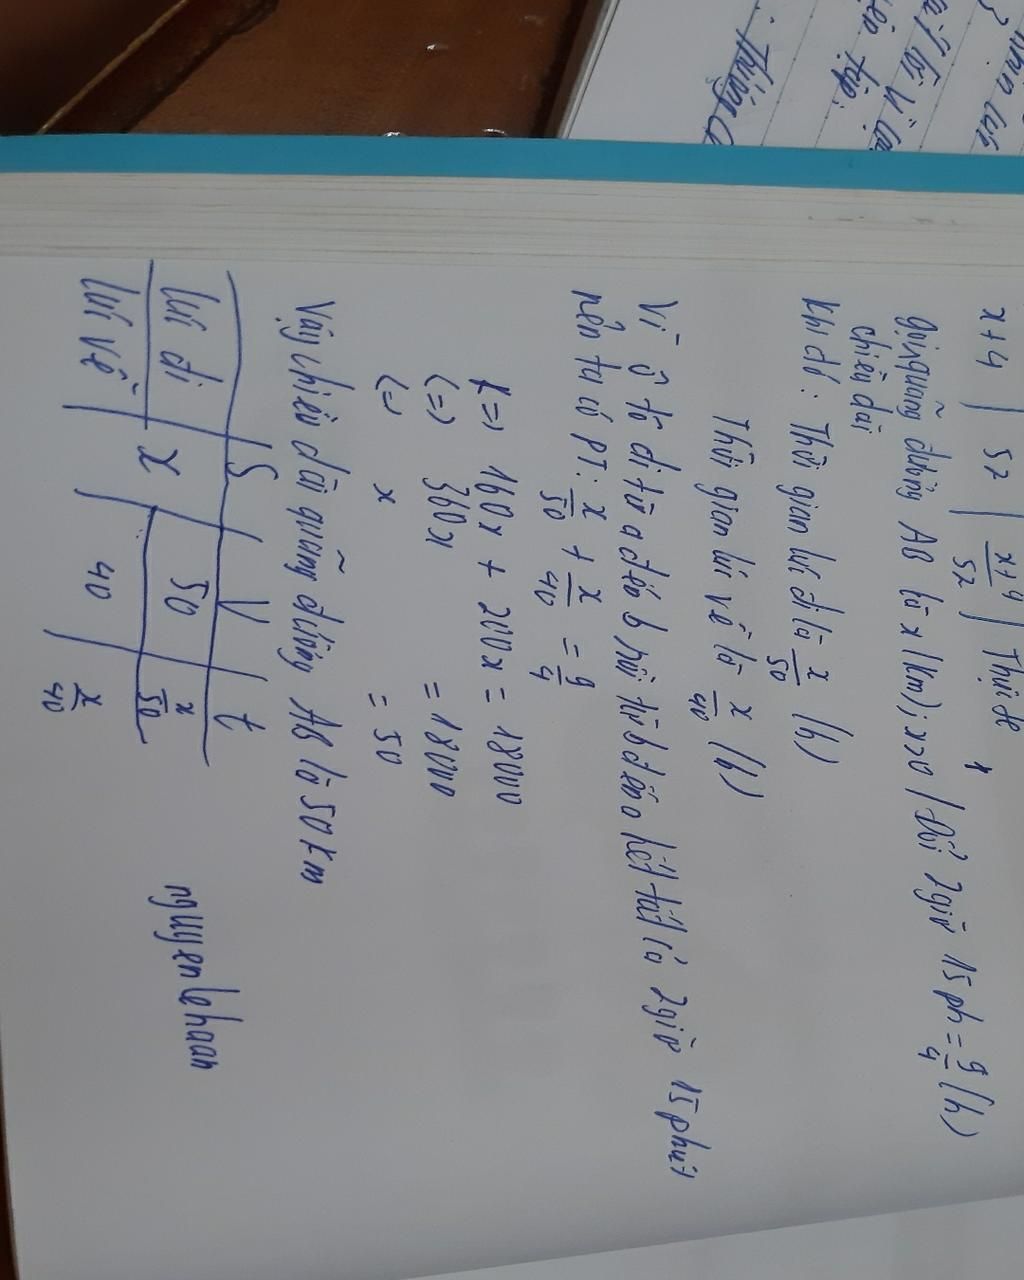 x+4 | 52 | x+4/52 | Thực tế
Gọi quãng đường AB là x (km); x>0 / Đổi 2giờ 15ph = 9/4 (h)
chiều dài
khi đó: Thời gian lúc đi là x/50 (h)
Thời gian lúc về là x/40 (h)
Vì ô tô đi từ a đến b rồi từ b đến a hết tất cả 2giờ 15phút
nên ta có PT: x/50 + x/40 = 9/4
<=> 160x + 200x = 18000
<=> 360x = 18000
<=> x = 50
Vậy chiều dài quãng đường AB là 50km
S | V | t
lúc đi | x | 50 | x/50
lúc về | 40 | x/40
nguyenlehaan